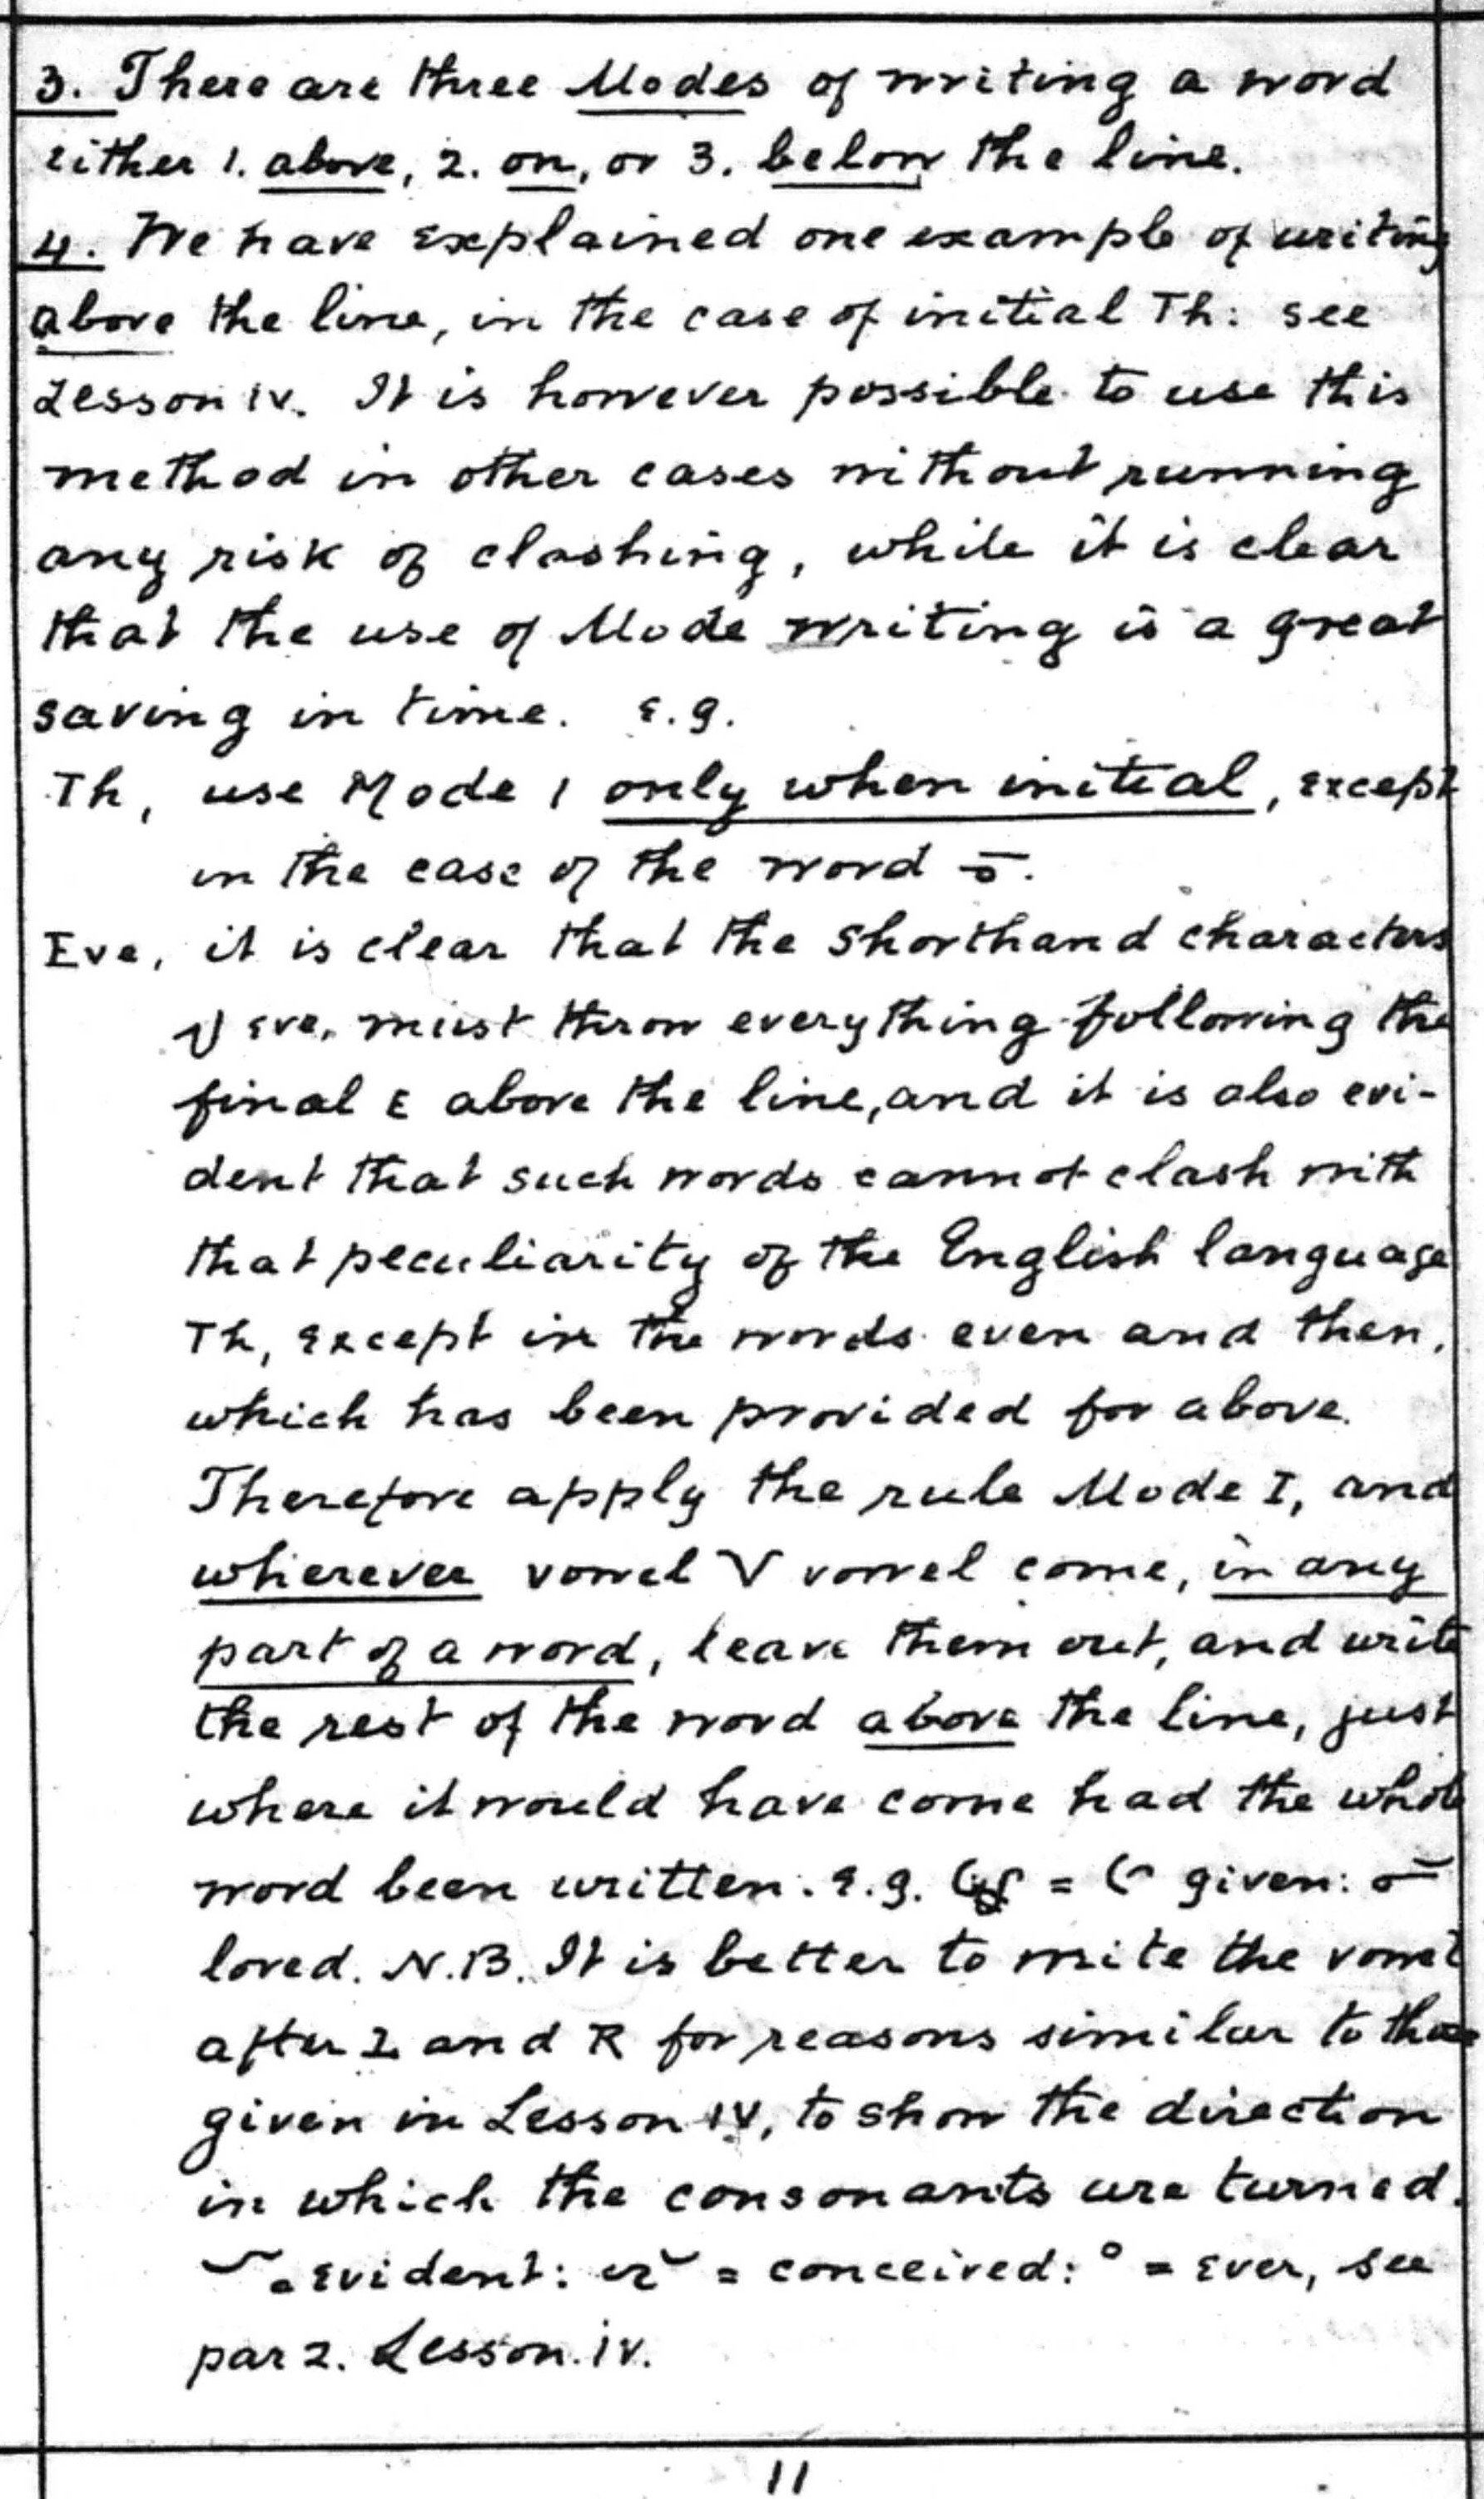 3. There are three Modes of writing a word
either 1. above, 2. on, or 3. below the line.
4. We have explained one example of writing
above the line, in the case of initial Th: see
Lesson IV. It is however possible to use this
method in other cases without running
any risk of clashing, while it is clear
that the use of Mode writing is a great
saving in time. E.g.
Th, use Mode 1 only when initial, except
in the case of the word
Eve, it is clear that the Shorthand characters
eve, must throw everything following the
final E above the line, and it is also evi-
dent that such words cannot clash with
that peculiarity of the English language
Th, except in the words even and then,
which has been provided for above.
Therefore apply the rule Mode I, and
wherever vowel V vowel come, in any
part of a word, leave them out, and write
the rest of the word above the line, just
where it would have come had the whole
word been written. E.g. = given:
loved. N.B. It is better to write the vowel
after L and R for reasons similar to those
given in Lesson IV, to show the direction
in which the consonants are turned.
= evident: = conceived: ° = ever, see
par 2. Lesson. IV.
11